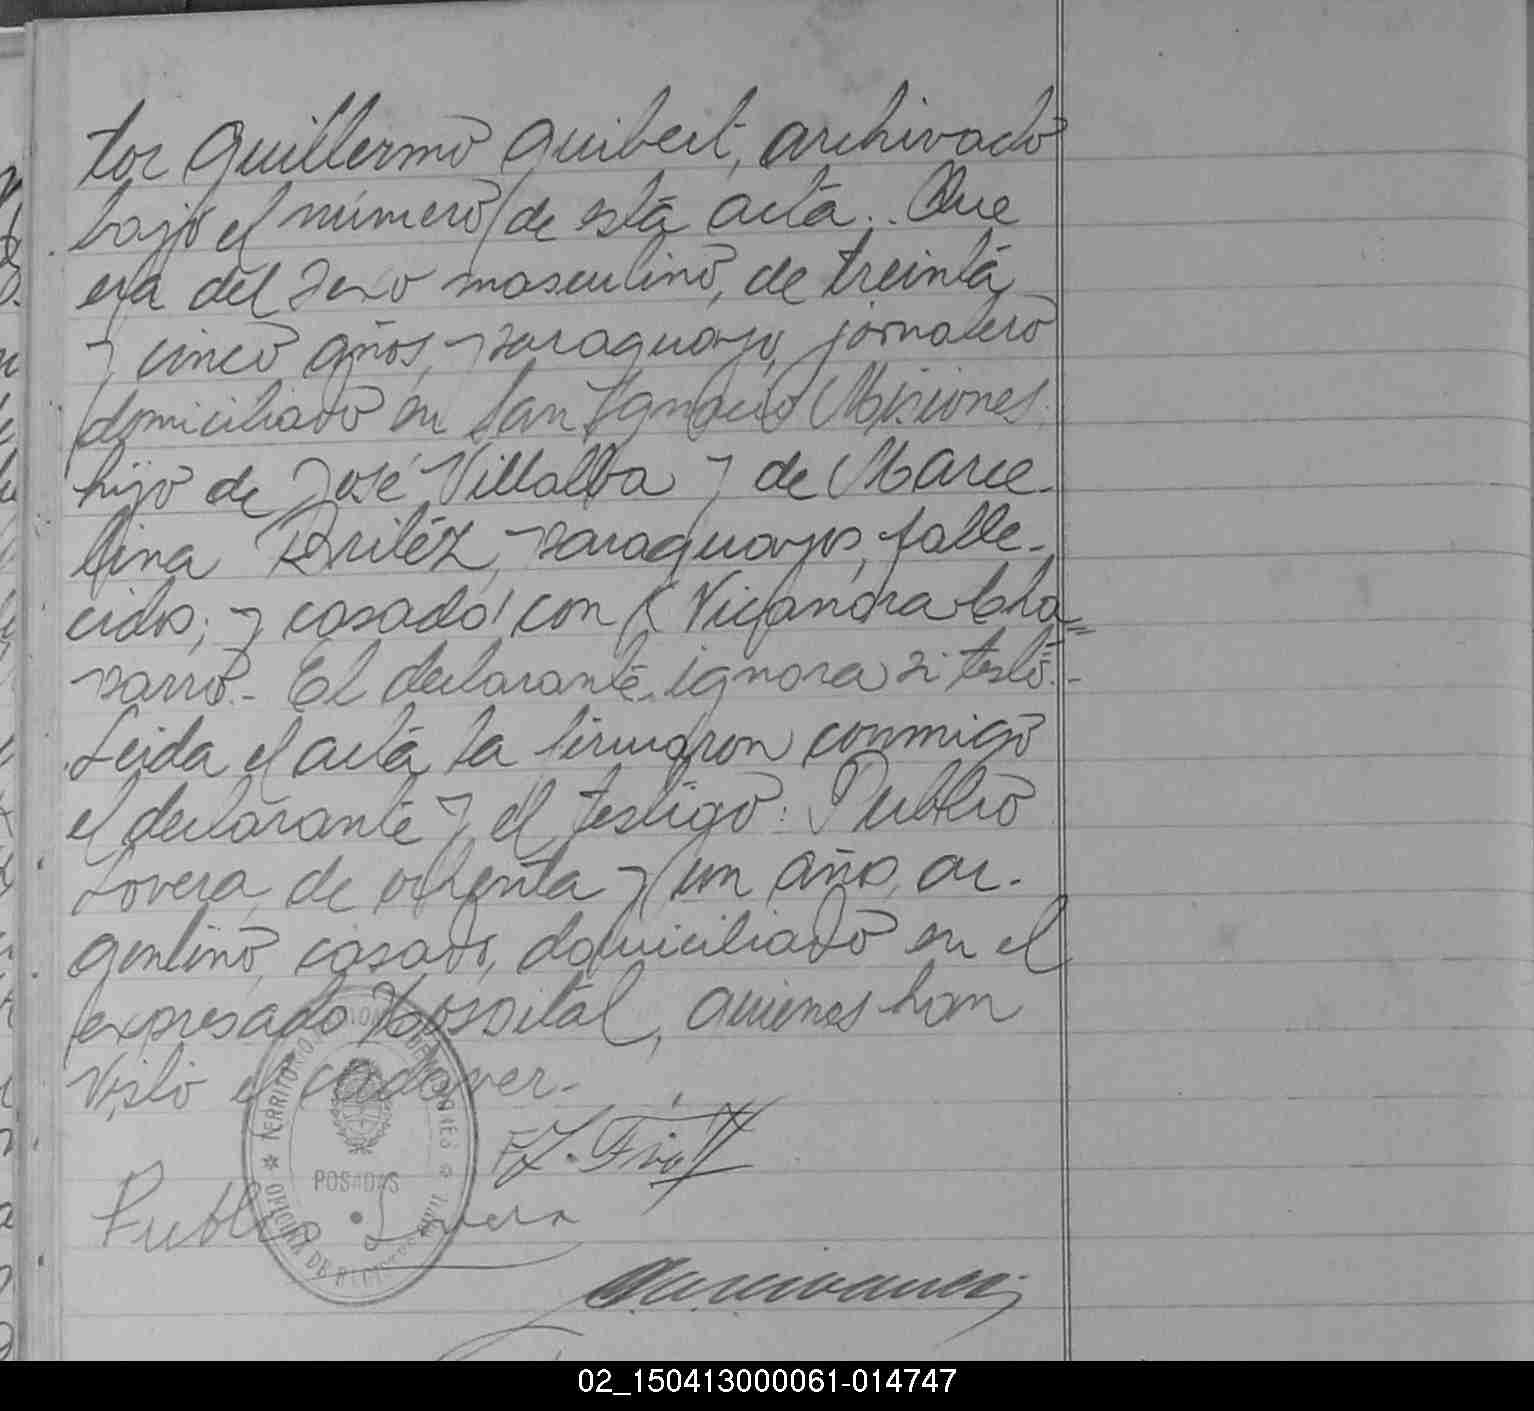 tor Guillermo Guibert, archivado
bajo el número de esta acta.. Que
era del sexo masculino, de treinta
y cinco años, paraguayo, jornalero
domiciliado en San Ignacio Misiones.
hijo de José Villalba y de Marce-
lina Britéz, paraguayos, falle-
cidos; y casado con Nicanora Cha=
parro.- El declarante ignora si testó.-
Leida el acta la firmaron conmigo
el declarante y el testigo: Publio
Lovera, de ochenta y un años, ar-
gentino, casado, domiciliado en el
expresado Hospital, quienes han
visto el cadaver.-
TERRITORIO NACIONAL DE MISIONES
POSADAS
OFICINA DE REGISTRO CIVIL
Publio Lovera
02_150413000061-014747